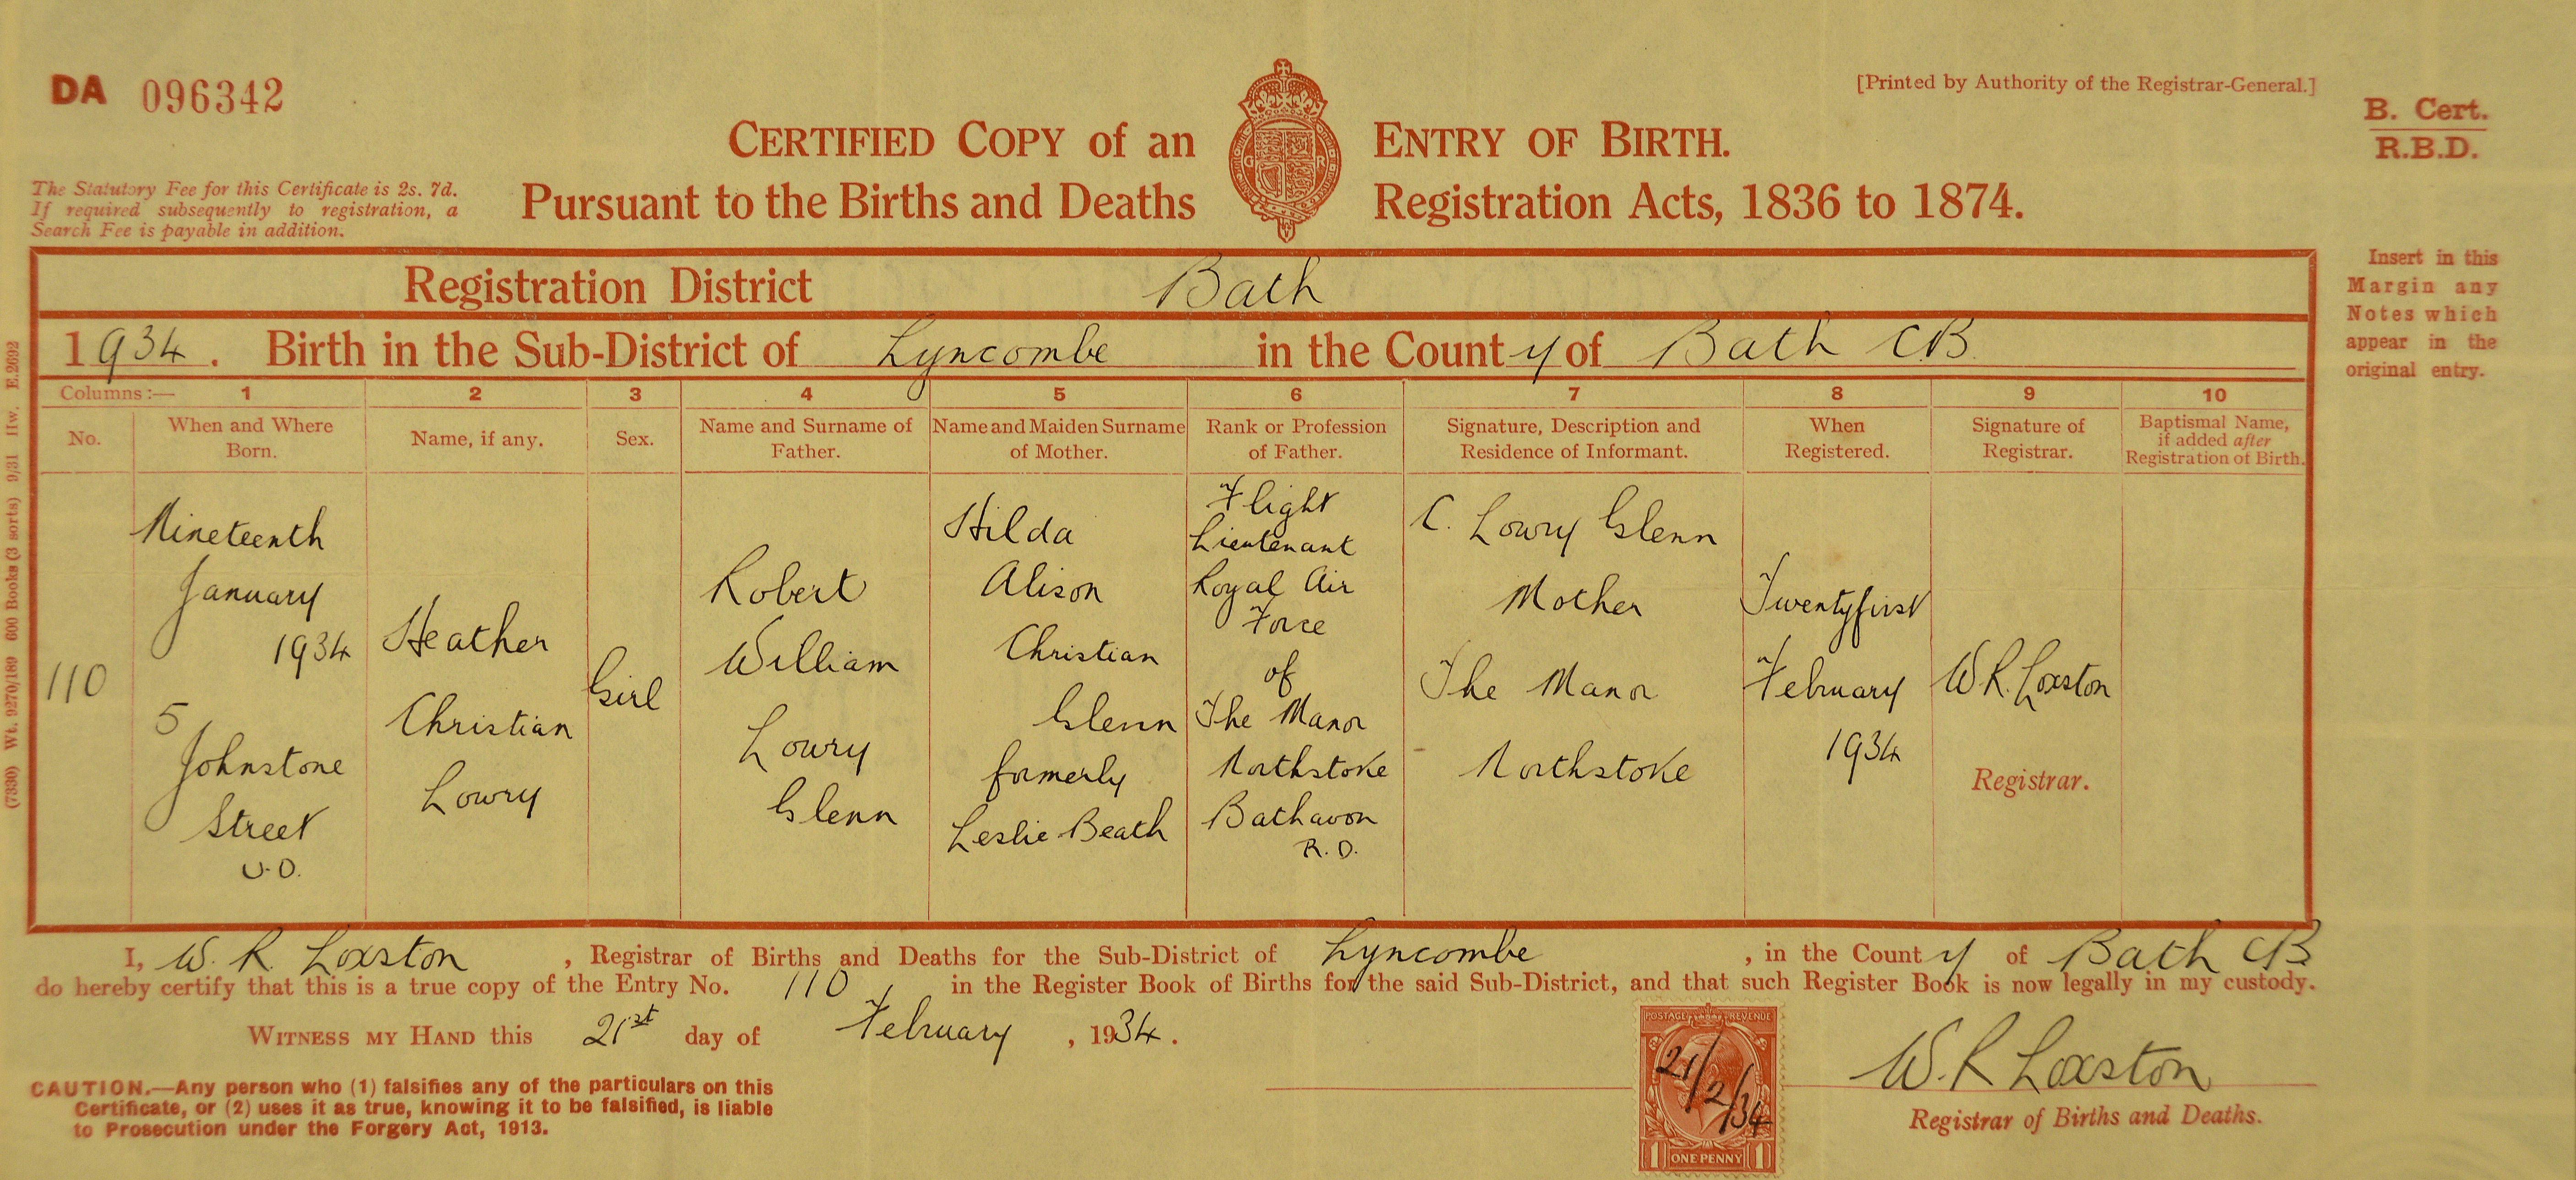 DA 096342
[Printed by Authority of the Registrar-General.]
B. Cert.
R.B.D.
CERTIFIED COPY of an ENTRY OF BIRTH.
Pursuant to the Births and Deaths Registration Acts, 1836 to 1874.
G R
The Statutory Fee for this Certificate is 2s. 7d.
If required subsequently to registration, a
Search Fee is payable in addition.
Insert in this
Margin any
Notes which
appear in the
original entry.
Registration District Bath
1934. Birth in the Sub-District of Lyncombe in the County of Bath C.B.
Columns:— 1 2 3 4 5 6 7 8 9 10
No.
When and Where
Born.
Name, if any.
Sex.
Name and Surname of
Father.
Name and Maiden Surname
of Mother.
Rank or Profession
of Father.
Signature, Description and
Residence of Informant.
When
Registered.
Signature of
Registrar.
Baptismal Name,
if added after
Registration of Birth.
110
Nineteenth
January
1934
5
Johnstone
Street
U.D.
Heather
Christian
Lowry
Girl
Robert
William
Lowry
Glenn
Hilda
Alison
Christian
Glenn
formerly
Leslie Beath
Flight
Lieutenant
Royal Air
Force
of
The Manor
Northstoke
Bathavon
R.D.
C. Lowry Glenn
Mother
The Manor
Northstoke
Twentyfirst
February
1934
W R. Loxston
Registrar.
I, W. R. Loxston, Registrar of Births and Deaths for the Sub-District of Lyncombe, in the County of Bath CB
do hereby certify that this is a true copy of the Entry No. 110 in the Register Book of Births for the said Sub-District, and that such Register Book is now legally in my custody.
WITNESS MY HAND this 21st day of February, 1934.
CAUTION.—Any person who (1) falsifies any of the particulars on this
Certificate, or (2) uses it as true, knowing it to be falsified, is liable
to Prosecution under the Forgery Act, 1913.
POSTAGE REVENUE
21/2/34
1 ONE PENNY 1
W. R Loxston
Registrar of Births and Deaths.
(7330) Wt. 9270/189 600 Books (3 sorts) 9/31 Hw. E.2692